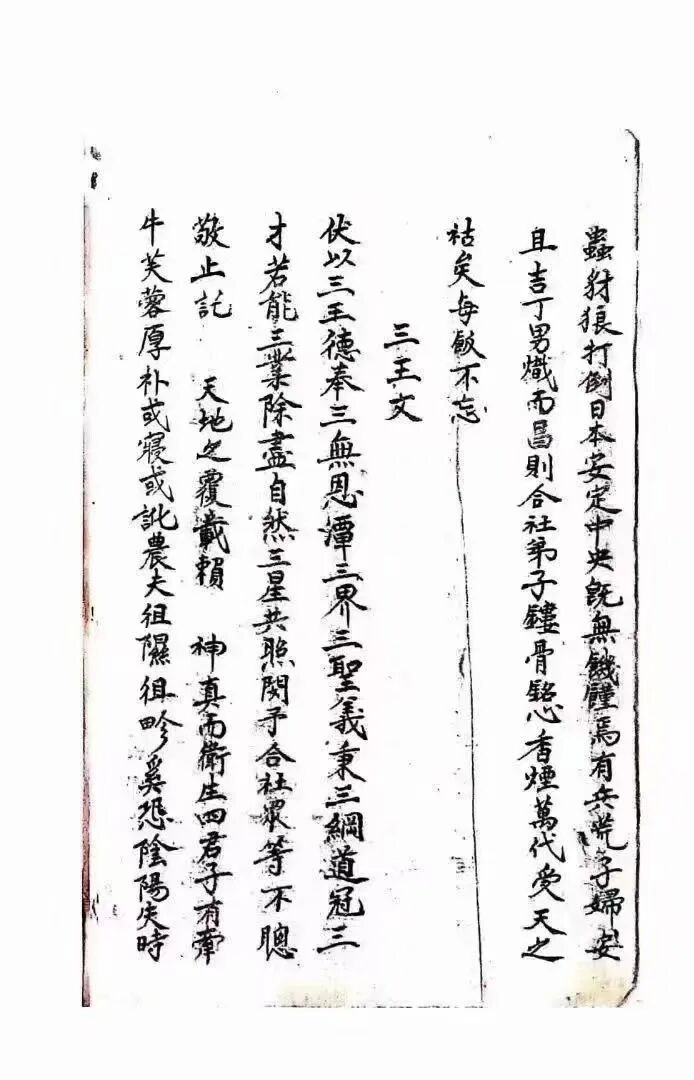 蟲豺狼打倒日本安定中央既無饑饉焉有兵荒子婦安
且吉丁男熾而昌則合社弟子鏤骨銘心香煙萬代受天之
祜矣每飯不忘
三王文
伏以三王德奉三無恩潭三界三聖義秉三綱道冠三
才若能三業除盡自然三星共照関予合社眾等不聰
敬止託 天地之覆載賴 神真而衛生四君子有
牛芙蓉厚朴或寢或訛農夫徂隰徂畛奚恐陰陽失時